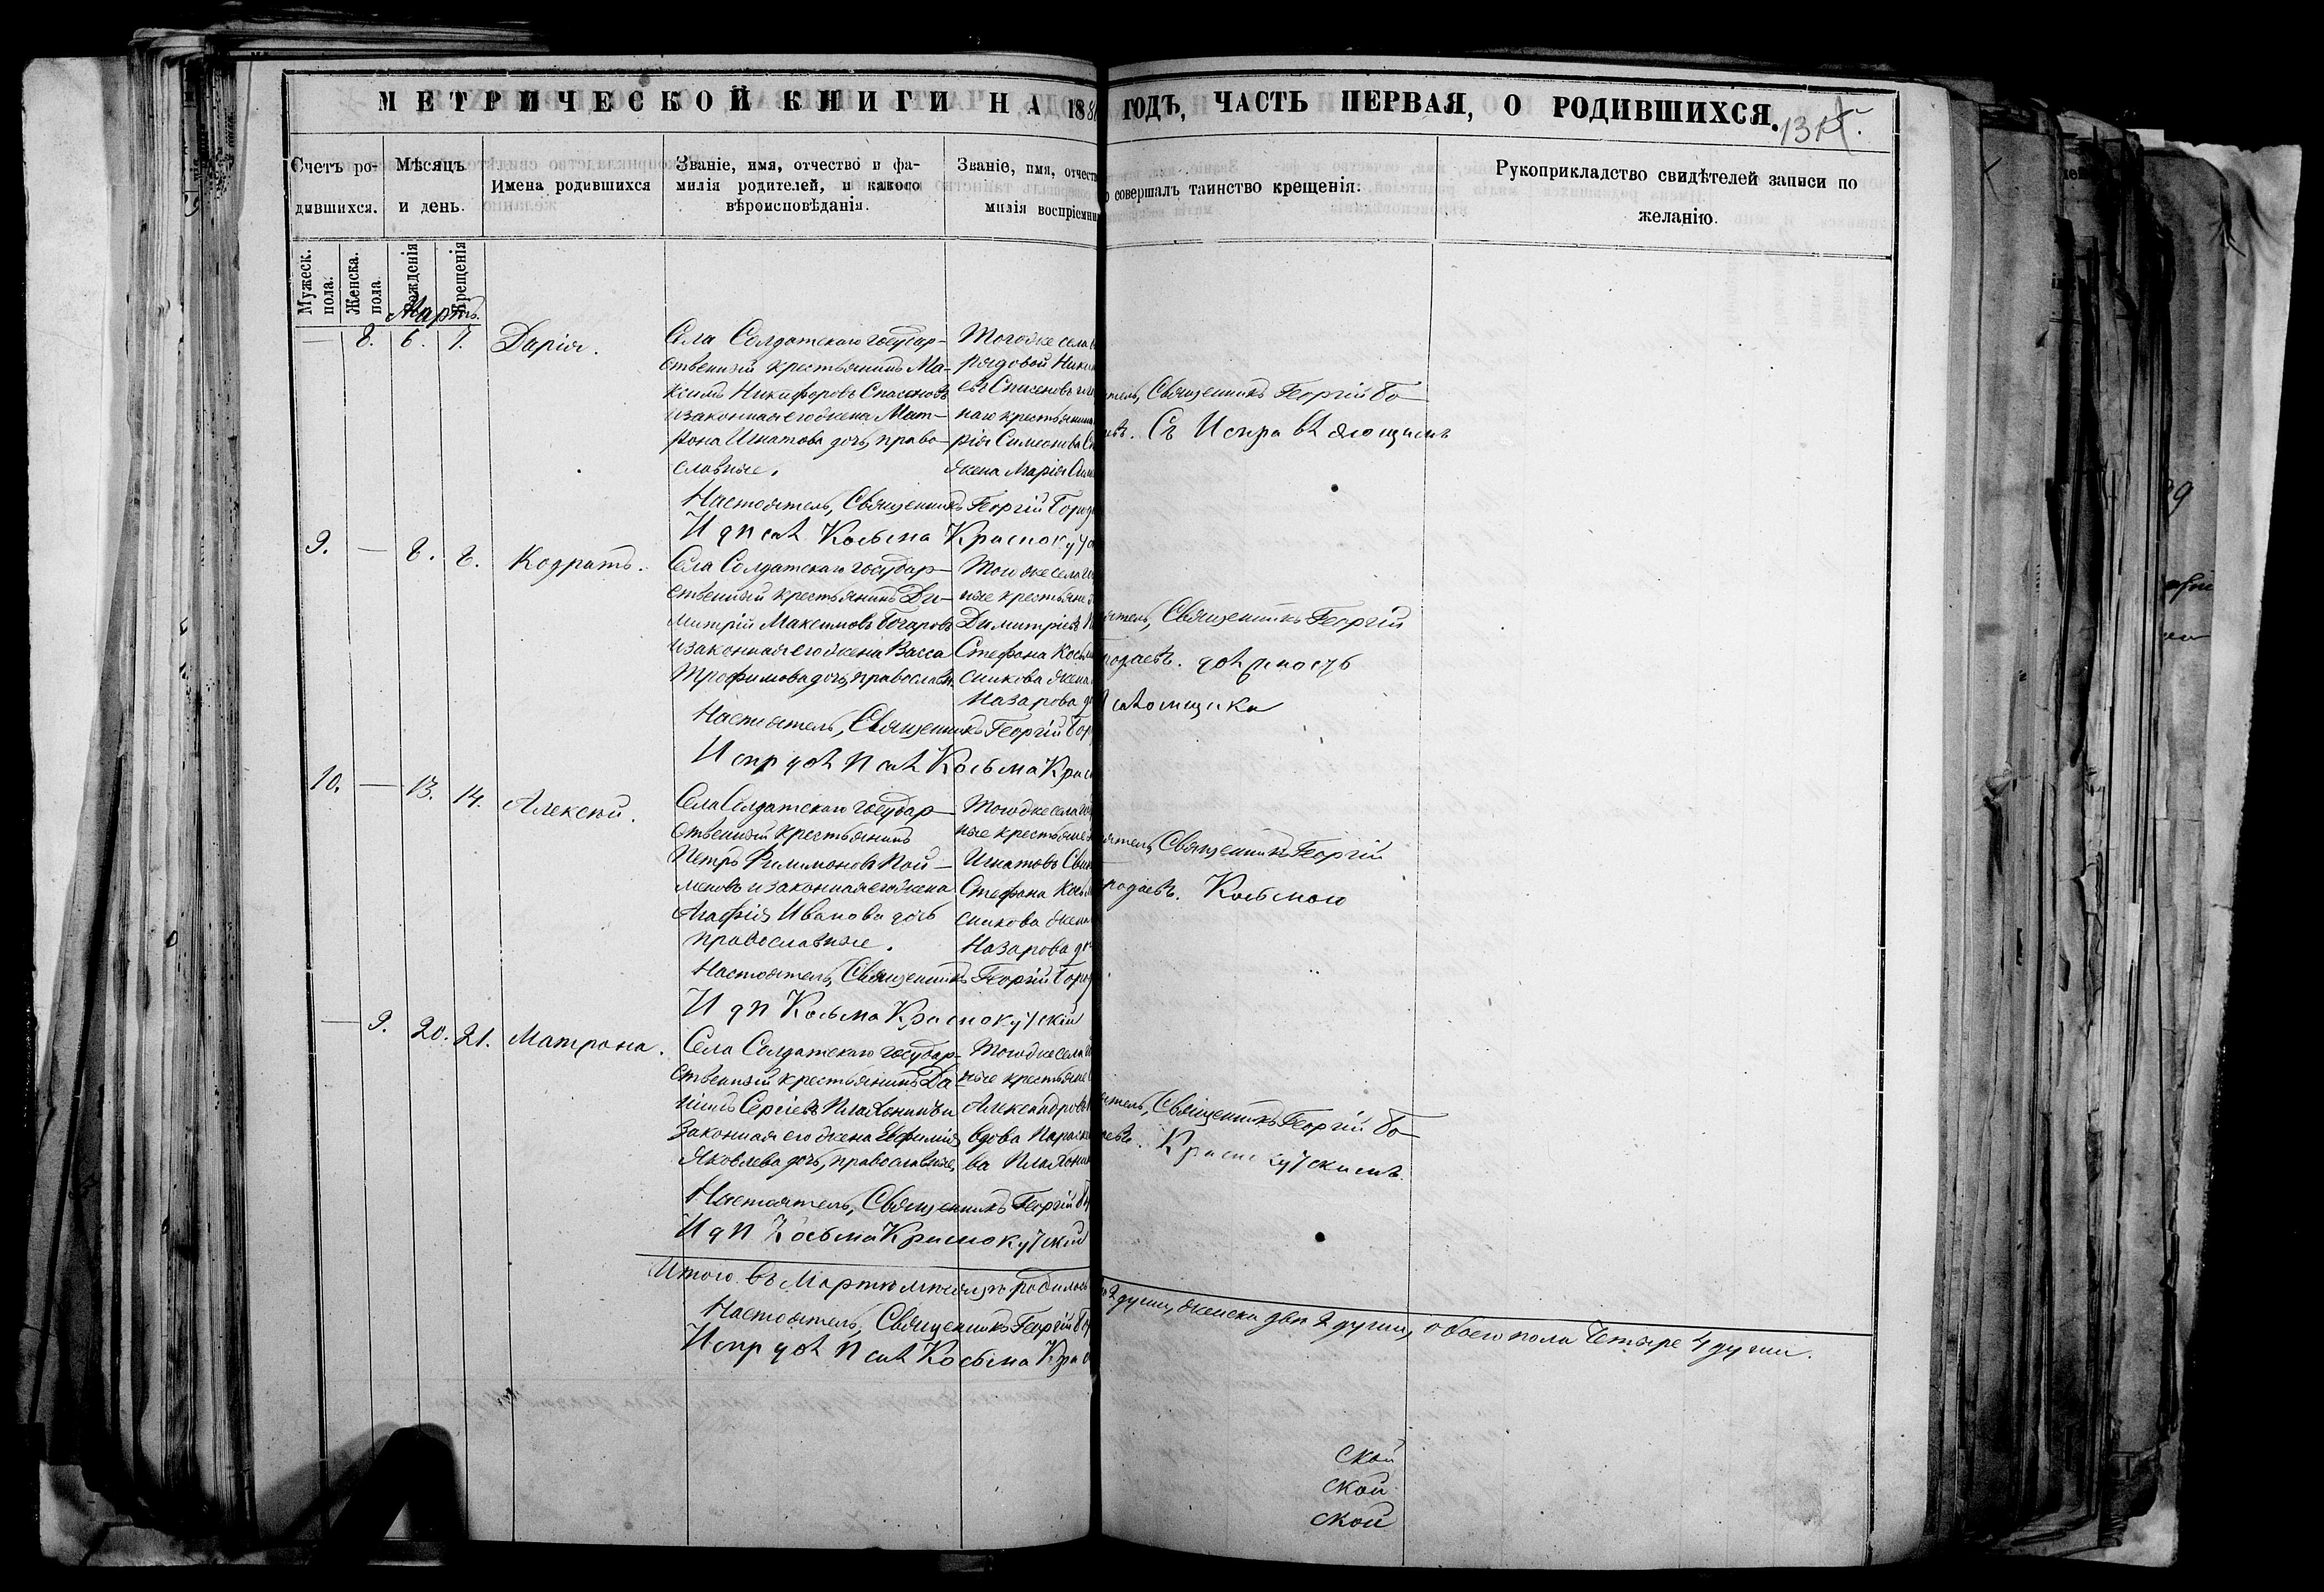 МЕТРИЧЕСКОЙ КНИГИ НА 188
ГОДЪ, ЧАСТЬ ПЕРВАЯ, О РОДИВШИХСЯ.
Счетъ ро-
дившихся.
Мѣсяцъ
и день.
Имена родившихся
Званіе, имя, отчество и фа-
милія родителей, и какого
вѣроисповѣданія.
Званіе, имя, отчест
милія воспріемни
о совершалъ таинство крещенія.
Рукоприкладство свидѣтелей записи по
желанію.
Мужеск.
пола.
Женска.
пола
Рожденія
Крещенія
Мартъ.
— 8. 6. 7. Дарія.
Села Солдатскаго государ-
ственный крестьянинъ Ма-
ксимъ Никифоровъ Спасеновъ
и законная его жена Мат-
рона Игнатова дочь, право-
славные.
Тогоже села
рядовой Ники
евъ Спасеновъ и
наго крестьянина
рія Симеонова Сп
жена Марія Сим
тель, Священникъ Георгій Го-
евъ. Съ Исправляющимъ
Настоятель, Священникъ Георгій Город
И д пса Косьма Краснокут
9. — 8. 8. Кодратъ.
Села Солдатскаго государ-
ственный крестьянинъ Ди-
митрій Максимовъ Гочаровъ
и законная его жена Васса
Трофимова дочь, православн.
Тогоже села го
ные крестьяне
Димитріевъ
Стефана Косьм
сикова жена
Назарова до
ятель, Священникъ Георгій
родаевъ. должность
псаломщика
Настоятель, Священникъ Георгій Гор
Испр дол Псал Косьма Крас
10. — 13. 14. Алексѣй.
Села Солдатскаго государ-
ственный крестьянинъ
Петръ Филимоновъ Пой-
меновъ и законная его жена
Агафія Иванова дочь
православные.
Тогоже села гос
ные крестьяне
Игнатовъ Сви
Стефана Косьм
сикова жена
Назарова до
ятель, Священникъ Георгій
родаевъ. Косьмою
Настоятель, Священникъ Георгій Город
И д П Косьма Краснокутскій
— 9. 20. 21. Матрона.
Села Солдатскаго государ-
ственный крестьянинъ Да-
ніилъ Сергіевъ Плахонинъ и
законная его жена Евфимія
Яковлева дочь, православные,
Тогоже села го
ные крестьяне
Александровъ
вдова Параск
ва Плахони
ятель, Священникъ Георгій Го-
евъ. Краснокутскимъ.
Настоятель, Священникъ Георгій Го
И д П Косьма Краснокутскій
Итого въ Мартѣ мѣсяцѣ родилось
2 души, женска двѣ 2 души, обоего пола четыре 4 души.
Настоятель, Священникъ Георгій Го
Испр дол Псал Косьма Крас
ской
ской
ской